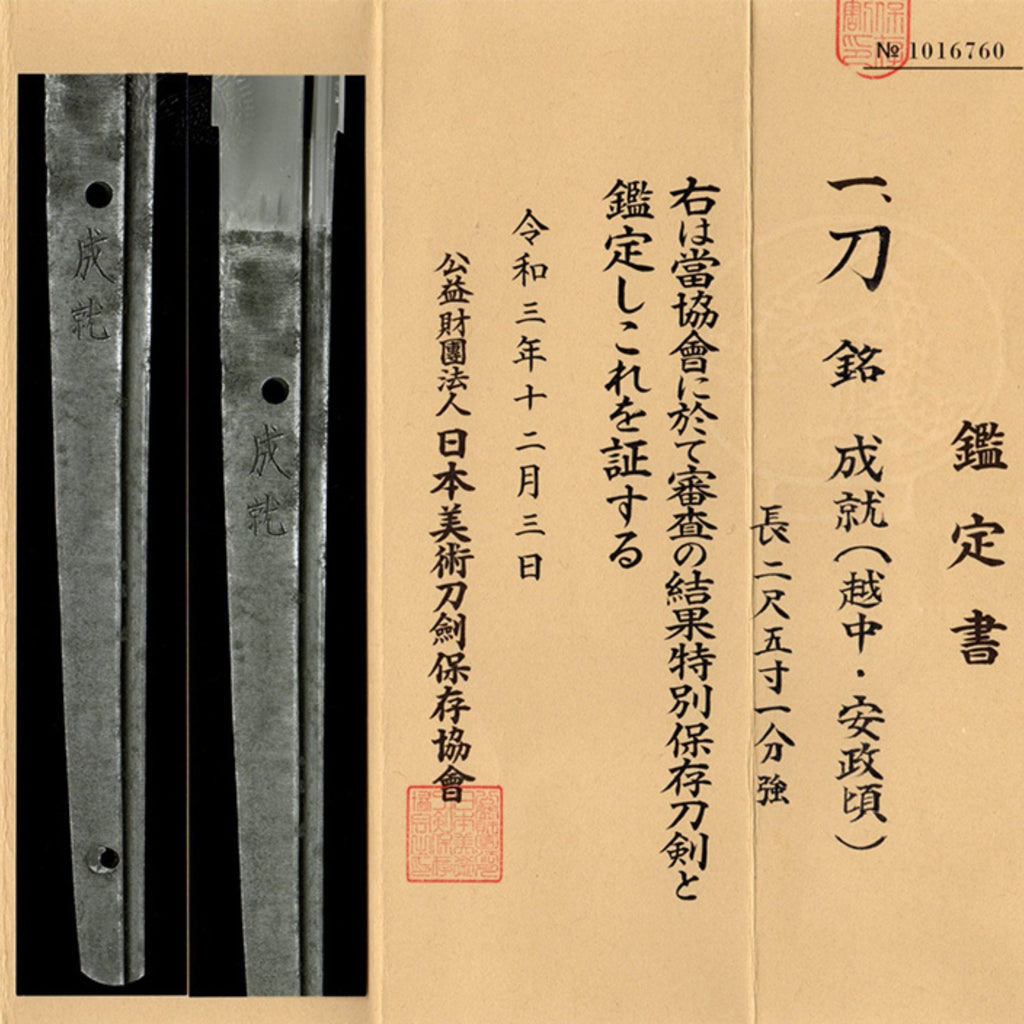 № 1016760
鑑定書
一、刀 銘 成就(越中・安政頃)
長二尺五寸一分強
右は當協會に於て審査の結果特別保存刀剣と
鑑定しこれを証する
令和三年十二月三日
公益財團法人日本美術刀劍保存協會
成就
成就